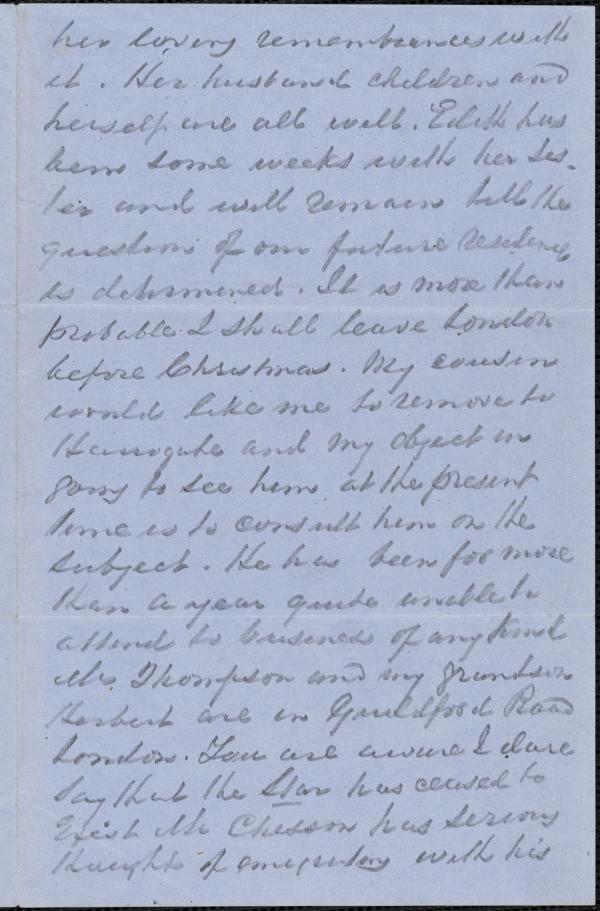 her loving remembrances with
it. Her husband children and
herself are all well. Edith has
been some weeks with her sis-
ter and will remain till the
question of our future residence
is determined. It is more than
probable I shall leave London
before Christmas. My cousin
would like me to remove to
Harrogate and my object in
going to see him at the present
time is to consult him on the
subject. He has been for more
than a year quite unable to
attend to business of any kind
Mrs Thompson and my grandson
Herbert are in Guildford Road
London. You are aware I dare
say that the Star has ceased to
exist Mr Chesson has serious
thoughts of emigrating with his